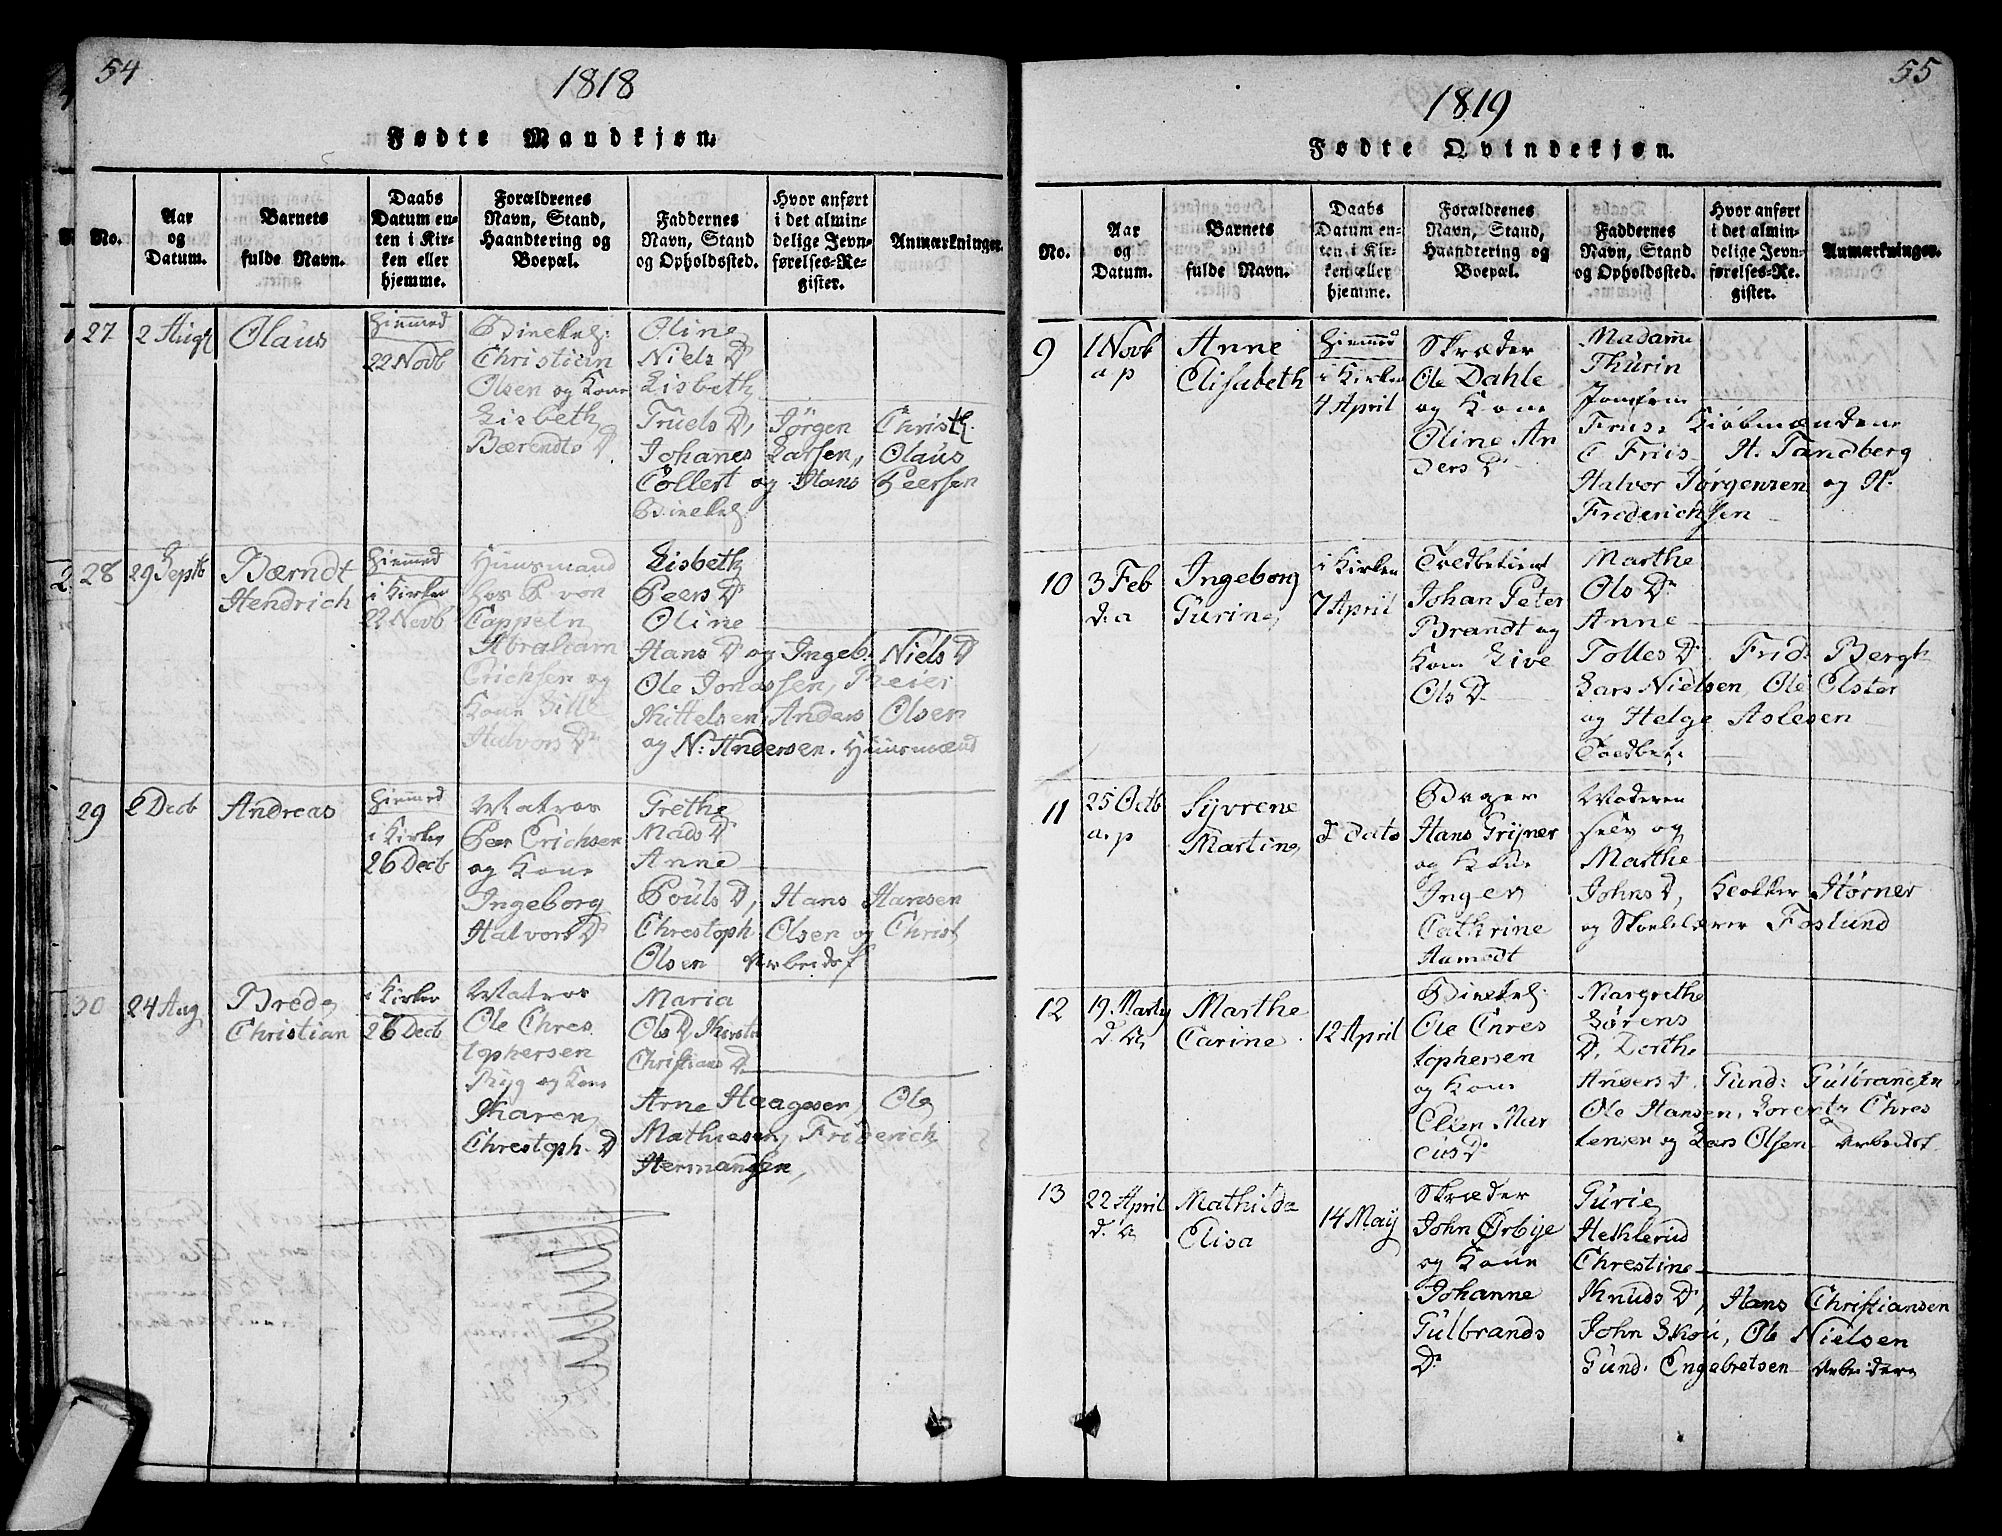 54
1818
Fødte Mandkjøn.
No.
Aar og Datum.
Barnets fulde Navn.
Daabs Datum enten i Kirken eller hjemme.
Forældrenes Navn, Stand, Haandtering og Boepæl.
Faddernes Navn, Stand og Opholdssted.
Hvor anført i det almindelige Jevnførelses-Register.
Anmærkninger.
27
2 Augt
Olaus
Hiemmed
22 Novb
Christian
Olsen og Kone
Lisbeth
Bærendts D
Oline
Niels D
Lisbeth
Truels D, Jørgen Christ
Johanes Larsen, Olaus
Collert og Hans Peersen
28
29 Septb
Bærndt
Hendrich
Hiemmed
i Kirken
22 Novb
Huusmand
hos P von
Cappeln
Abraham
Erichsen og
Kone Sille
Halvors D
Lisbeth
Peers D
Oline
Hans D og Ingeb. Niels D
Ole Jonassen, Peier
Kittelsen, Anders Olsen
og N: Andersen. Huusmænd
29
2 Decb
Andreas
Hiemmed
i Kirken
26 Decb
Matros
Peer Erichsen
og Kone
Ingeborg
Halvors D
Grethe
Mads D
Anne
Pouls D, Hans Hansen
Christoph Olsen og Christ
Olsen Arbeidsf
30
24 Aug
Brede
Christian
i Kirken
26 Decb
Matros
Ole Chres
tophersen
Ryg og Kone
Karen
Chrestoph. D
Maria
Ols D Kirsten
Christians D
Arne Haagesen, Ole
Mathiesen, Friderich
Hermansen,
55
1819
Fødte Qvindekjøn.
No.
Aar og Datum.
Barnets fulde Navn.
Daabs Datum enten i Kirken eller hjemme.
Forældrenes Navn, Stand, Haandtering og Boepæl.
Faddernes Navn, Stand og Opholdssted.
Hvor anført i det almindelige Jevnførelses-Register.
Anmærkninger.
9
1 Novb
a p
Anne
Elisabeth
Hiemmed
i Kirken
4 April
Skræder
Ole Dahle
og Kone
Oline An
ders D
Madame
Thurin
Jomfru
Friis, Kiøbmændene
C Friis H. Tandberg
Halvor Jørgensen og H:
Friderichsen
10
3 Feb
d. a
Ingeborg
Gurine
i Kirken
7 April
Toldbetient
Johan Peter
Brandt og
Kone Live
Ols D
Marthe
Ols D
Anne
Tolles D. Frid. Bergh
Lars Nielsen, Ole Olster
og Helge Aslesen
Toldbet.
11
25 Octb
a. p
Syvrene
Martine
d dato
Bager
Hans Grijner
og Kone
Inger
Cathrine
Aamodt
Moderen
selv og
Marthe
Johns D, Klokker Størner
og Skolelærer Foslund
12
19 Marty
d. A
Marthe
Carine
12 April
Ole Chres
tophersen
og Kone
Ellen Mar
cus D
Margrethe
Sørens
D, Dorthe
Anders D. Gund: Gulbransen
Ole Hansen, Lorentz Chres
tensen og Lars Olsen Arbeidsf
13
22 April
d. A
Mathilda
Elisa
14 May
Skræder
John Ørbye
og Kone
Johanne
Gulbrands
D
Gurie
Hethlerud
Chrestine
Knuds D, Hans Christiansen
John Skou, Ole Nielsen
Gund. Engebretsen Arbeidere